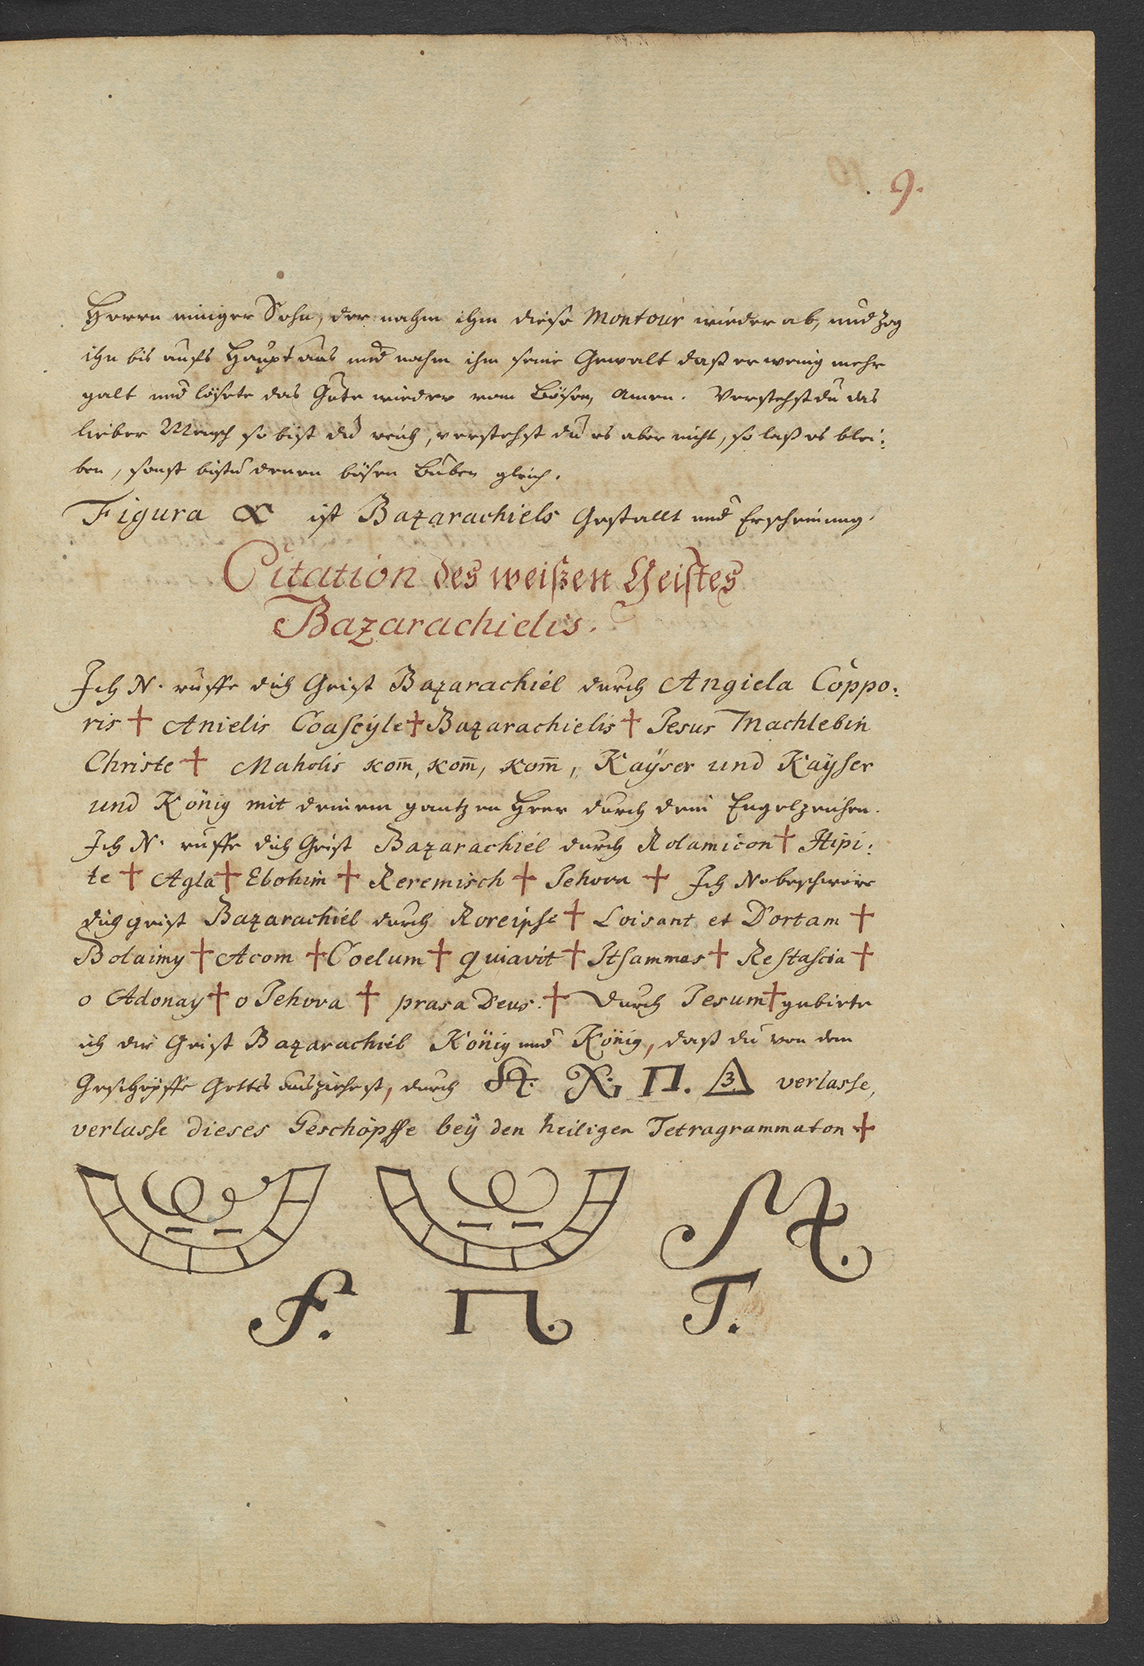 9.
Herrn einiger Sohn, der nahm ihm diese Montour wieder ab, und zog
ihn bis aufs Haupt aus und nahm ihm seine Gewalt daß er wenig mehr
galt und lösete das Gute wieder vom Bösen, Amen. Verstehst du das
lieber Mensch so bist du reich, verstehst du es aber nicht, so laß es blei:
ben, sonst bistu denen bösen Buben gleich.
Figura ist Bazarachiels Gestallt und Erscheinung.
Citation des weißen Geistes
Bazarachielis.
Ich N. ruffe dich Geist Bazarachiel durch Angiela Coppo:
ris † Anielis Coaseyle † Bazarachielis † Jesus Machlebin
Christe † Maholis kom̄, kom̄, kom̄, Kaÿser und Kaÿser
und König mit deinem gantzen Heer durch dein Engelzeichen.
Ich N. ruffe dich Geist Bazarachiel durch Rolamicon † Hipi:
te † Agla † Ebohim † Reremisch † Jehova † Ich N. beschwöre
dich geist Bazarachiel durch Roreipse † Loisant et Dortam †
Bolaimy † Acom † Coelum † Quiavit † Itsammas † Restascia †
o Adonay † o Jehova † prasa Deus. † Durch Jesum † gebiete
ich dir Geist Bazarachiel König und König, daß du von dem
Geschöpffe Gottes ausziehest, durch Π. 3. verlasse,
verlasse dieses Geschöpffe beÿ den heiligen Tetragrammaton †
f. Π. T.